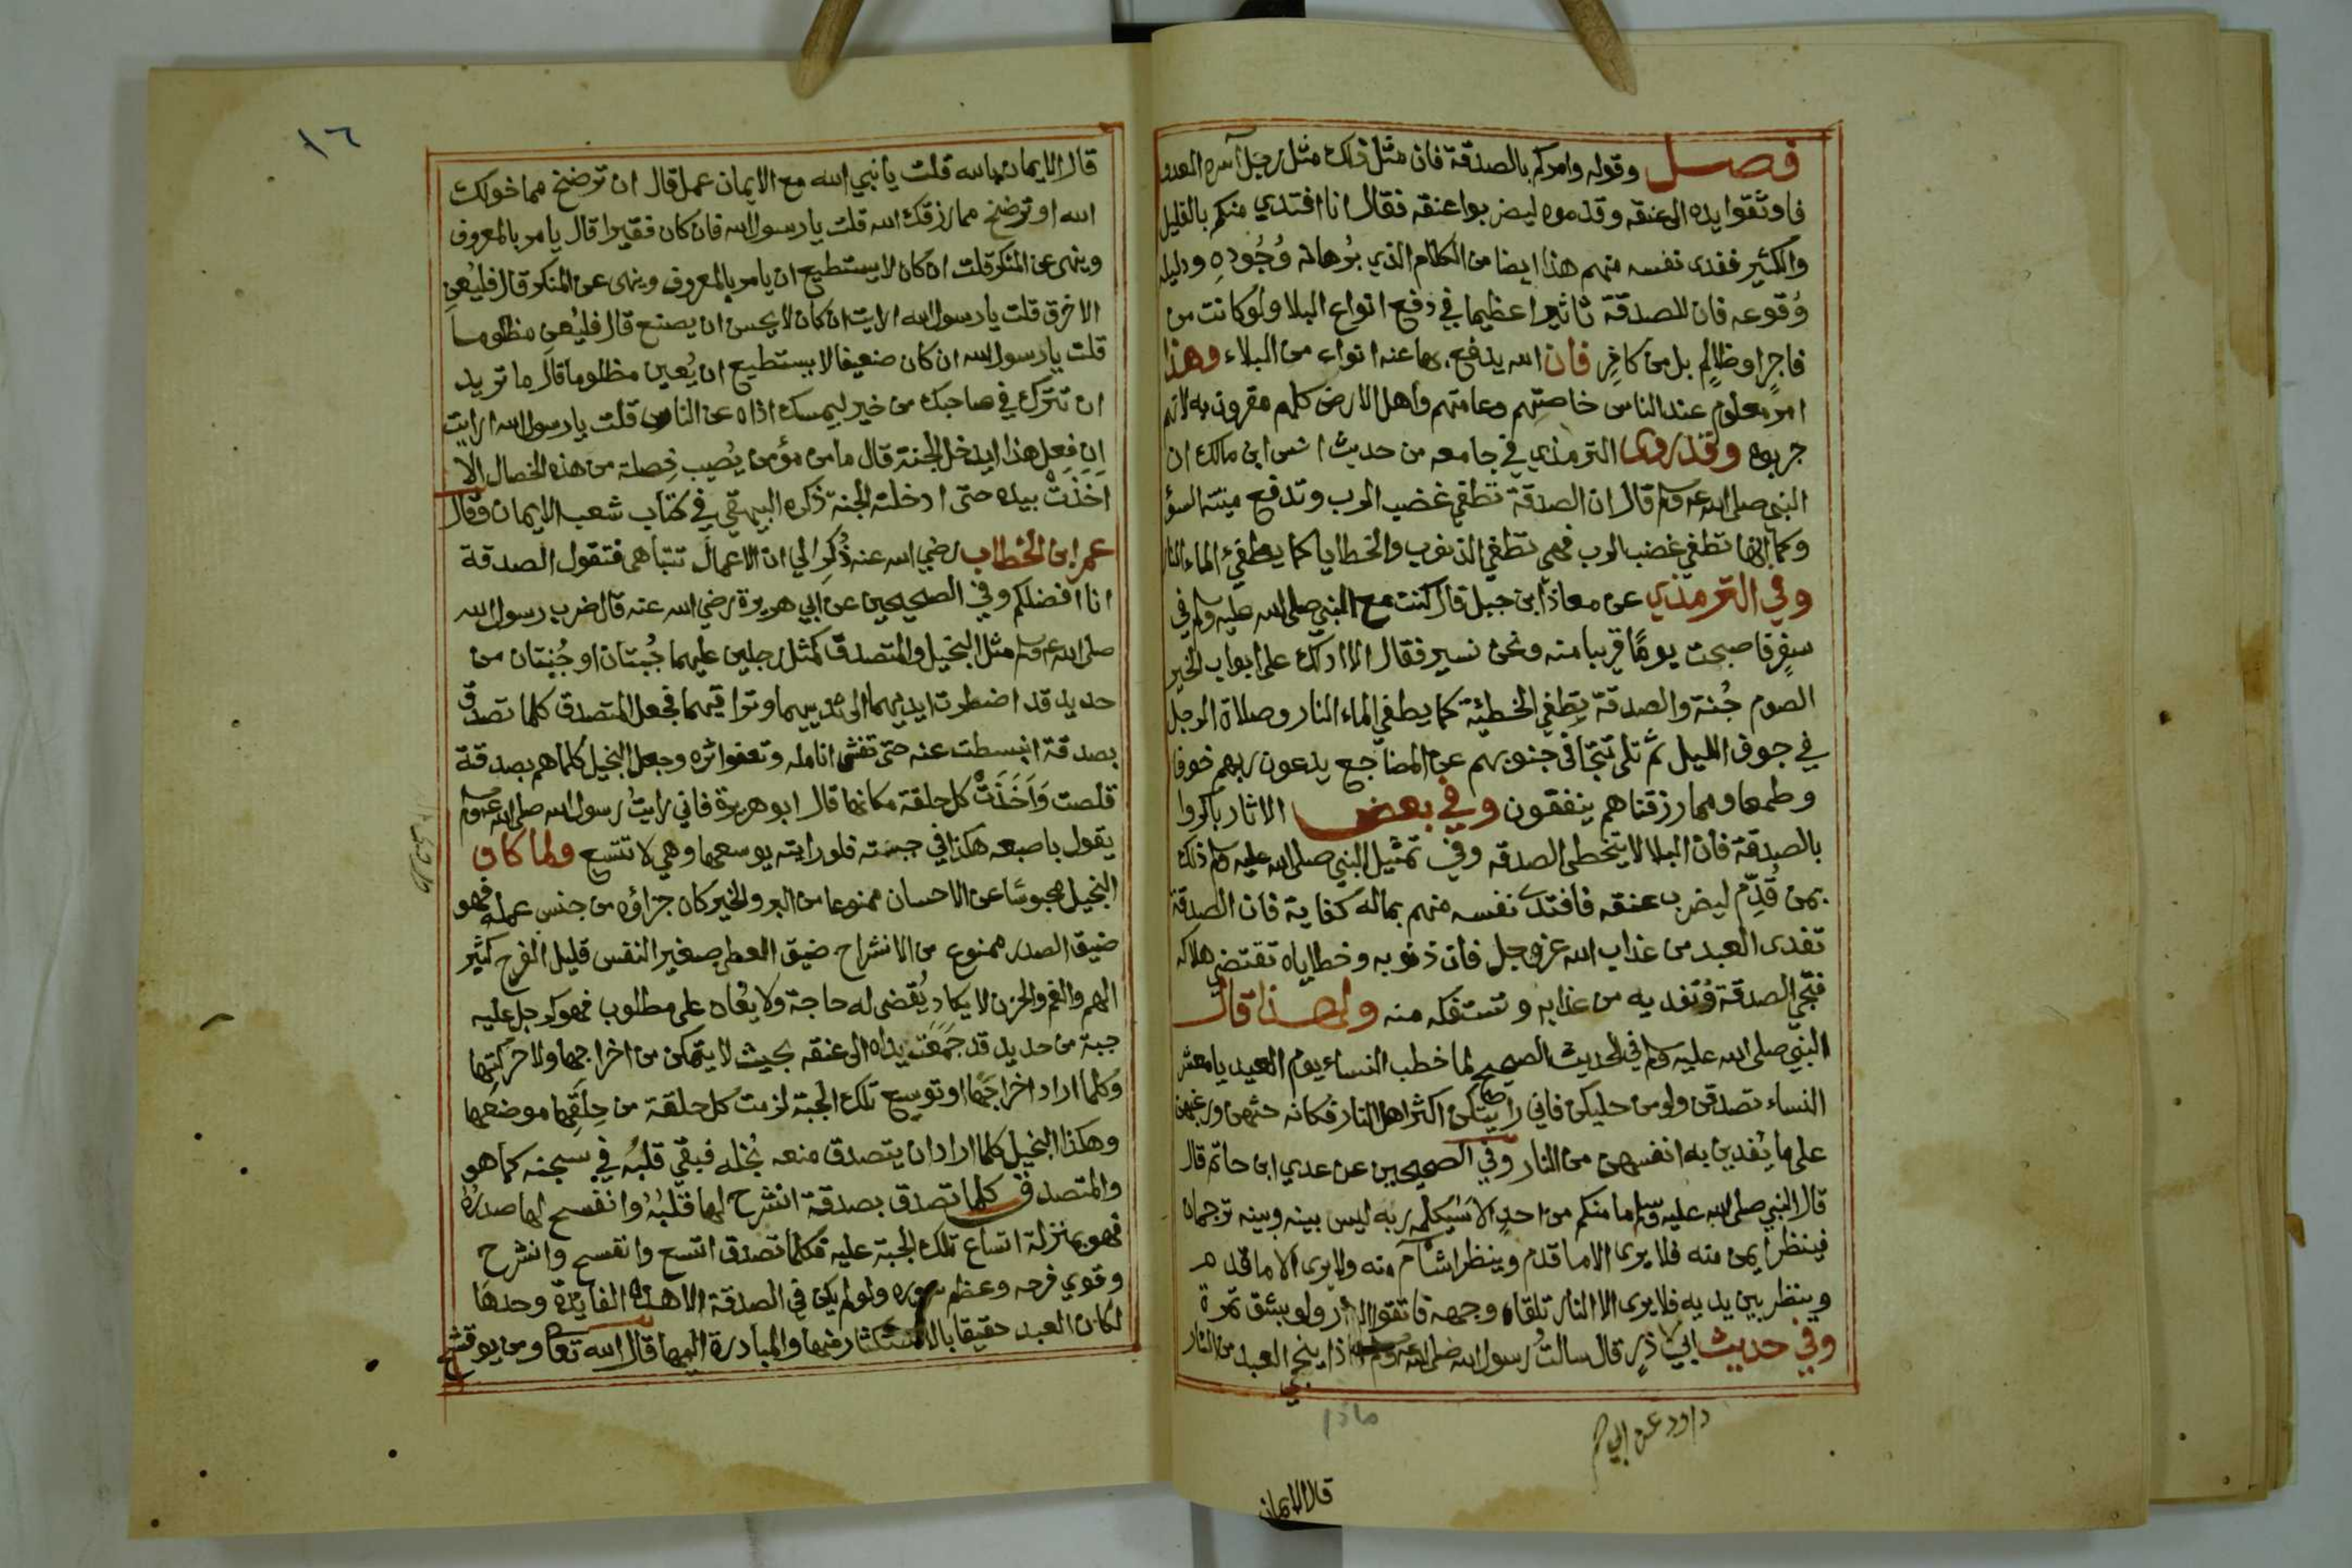 فصل وقوله وامركم بالصدقة فان مثل ذلك مثل رجل اسره العدو
فاوثقوا يده الى عنقه وقدموه ليضربوا عنقه فقال انا افتدي منكم بالقليل
والكثير ففدى نفسه منهم هذا ايضا من الكلام الذي برهانه وُجُودِه ودليله
وُقوعه فان للصدقة تاثيرا عظيما في دفع انواع البلا ولو كانت من
فاجرٍ او ظالمٍ بل من كافرٍ فان الله يدفع بها عنه انواع من البلاء وهذا
امر معلوم عند الناس خاصتهم وعامتهم واهل الارض كلهم مقرون به لانهم
جربوه وقد روى الترمذي في جامعه من حديث انس ابن مالك ان
النبي صلى الله عليه وسلم قال ان الصدقة تطفي غضب الرب وتدفع ميتة السؤ
وكما انها تطفي غضب الرب فهي تطفي الذنوب والخطايا كما يطفيُ الماء النار
وفي الترمذي عن معاذ ابن جبل قال كنت مع النبي صلى الله عليه وسلم في
سفرٍ فاصبحت يومًا قريبا منه ونحن نسير فقال الا ادلك على ابواب الخير
الصوم جُنة والصدقة تطفي الخطيئة كما يطفي الماء النار وصلاة الرجل
في جوف الليل ثم تلى تتجافى جنوبهم عن المضاجع يدعون ربهم خوفا
وطمعا ومما رزقناهم ينفقون وفي بعض الاثار باكروا
بالصدقة فان البلا لا يتخطى الصدقه وفي تمثيل النبي صلى الله عليه وسلم ذلك
بمن قُدِّم ليضرب عنقه فافتدى نفسه منهم بماله كفاية فان الصدقة
تفدى العبد من عذاب الله عز وجل فان ذنوبه وخطاياه تقتضي هلاكه
فتجي الصدقة وُتفديه من عذابه وتستفكه منه ولهذا قال
النبي صلى الله عليه وسلم في الحديث الصحيح لما خطب النساء يوم العيد يا معشر
النساء تصدقن ولو من حليكن فاني رايتكن اكثر اهل النار فكانه حثهن ورغبهن
على ما يُفدين به انفسهن من النار وفي الصحيحين عن عدي ابن حاتم قال
قال النبي صلى الله عليه وسلم ما منكم من احدٍ الا سَيكلمه ربه ليس بينه وبينه ترجمان
فينظر ايمن منه فلا يرى الا ما قدم وينظر اشآم منه ولا يرى الا ما قدم
وينظر بين يديه فلا يرى الا النار تلقاه وجهه فاتقوا النار ولو بشق تمرة
وفي حديث ابي ذرٍ قال سالتُ رسول الله صلى الله عليه وسلم ماذا ينجي العبد من النار
ماذا
داود عن ابي
قال الايمان
١٦
قال الايمان بالله قلت يا نبي الله مع الايمان عمل قال ان ترضخ مما خولك
الله او ترضخ مما رزقك الله قلت يا رسول الله فان كان فقيرا قال يامر بالمعروف
وينهى عن المنكر قلت ان كان لا يستطيع ان يامر بالمعروف وينهى عن المنكر قال فليُعِنِ
الاخرق قلت يا رسول الله ارايت ان كان لا يحسن ان يصنع قال فليُعِن مظلوما
قلت يا رسول الله ان كان ضعيفا لا يستطيع ان يُعين مظلوما قال ما تريد
ان تترك في صاحبك من خير ليمسك اذاه عن الناس قلت يا رسول الله ارايت
اِن فعل هذا ايدخل الجنة قال ما من مؤمن يُصيب خِصلة من هذه الخصال الا
اَخَذَتْ بيده حتى ادخلته الجنة ذكره البيهقي في كتاب شعب الايمان وقال
عمر ابن الخطاب رضي الله عنه ذُكِر الي ان الاعمال تتباهى فتقول الصدقة
انا افضلكم وفي الصحيحين عن ابي هريرة رضي الله عنه قال ضرب رسول الله
صلى الله عليه وسلم مثل البخيل والمتصدق كمثل رجلين عليهما جُبتان او جُنتان من
حديد قد اضطرت ايديهما الى ثدييهما وتراقيهما فجعل المتصدق كلما تصدق
بصدقة انبسطت عنه حتى تغشى انامله وتعفوا اثره وجعل البخيل كلما هم بصدقة
قلصت وَاَخَذَتْ كل حلقة مكانها قال ابو هريرة فاني رايتُ رسول الله صلى الله عليه وسلم
يقول باصبعه هكذا في جبته فلو رايته يوسعها وهي لا تتسع ولما كان
البخيل محبوسًا عن الاحسان ممنوعا من البر والخير كان جزاؤه من جنس عمله فهو
ضيق الصدر ممنوع من الانشراح ضيق العطن صغير النفس قليل الفرح كثير
الهم والغم والحزن لا يكاد يُقضى له حاجة ولا يُعان على مطلوب فهو كرجل عليه
جبة من حديد قد جُمعَت يداه الى عنقه بحيث لا يتمكن من اخراجها ولا حركتها
وكلما اراد اخراجَها او توسيع تلك الجبة لزمت كل حلقة من حِلَقِها موضعها
وهكذا البخيل كلما اراد ان يتصدق منعه بُخله فبقي قلبُه في سجنه كما هو
والمتصدق كلما تصدق بصدقة انشرح لها قلبُه وانفسح لها صدرُه
فهو بمنزلة اتساع تلك الجبة عليه فكلما تصدق اتسع وانفسح وانشرح
وقوي فرحه وعظم سروره ولو لم يكن في الصدقة الا هذه الفايدة وحدها
لكان العبد حقيقا بالاستكثار منها والمبادرة اليها قال الله تعا ومن يوق شح